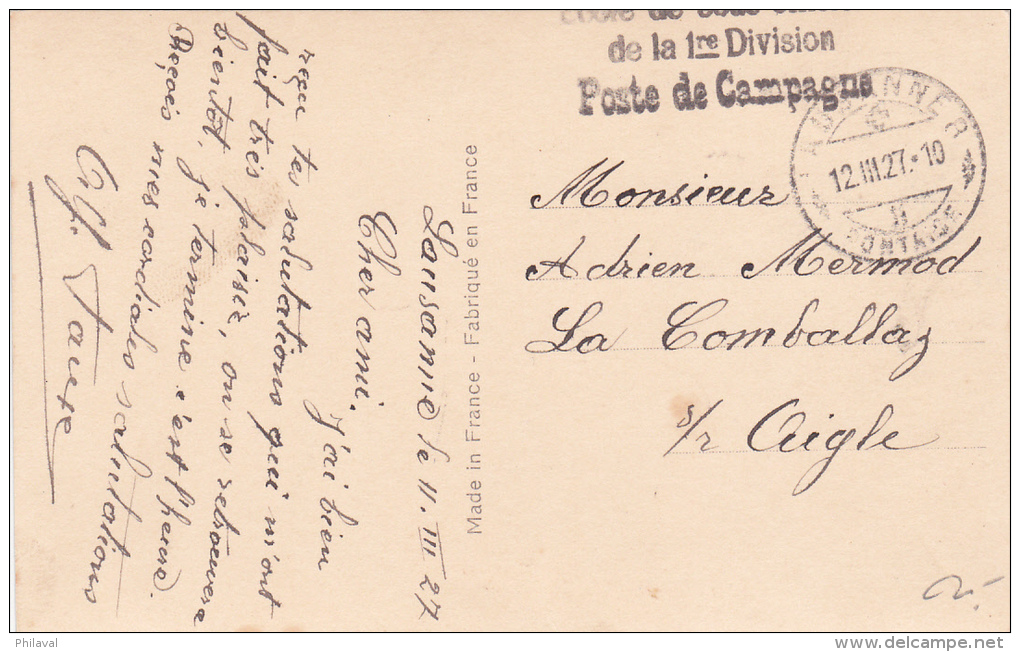 de la 1re Division
Poste de Campagne
12.III.27.-10
Monsieur
Adrien Mermod
La Comballaz
s/r Aigle
Made in France - Fabriqué en France
Lausanne le 11.III 27
Cher ami.
J'ai bien
reçu tes salutations qui m'ont
fait très plaisir, on se retrouvera
bientôt, je termine c'est l'heure.
Reçois mes cordiales salutations
Philaval
www.delcampe.net